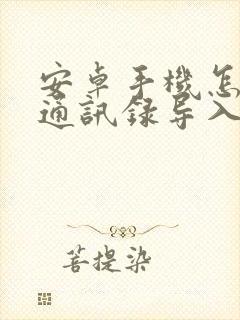 安卓手機怎
通訊録导入
菩提染